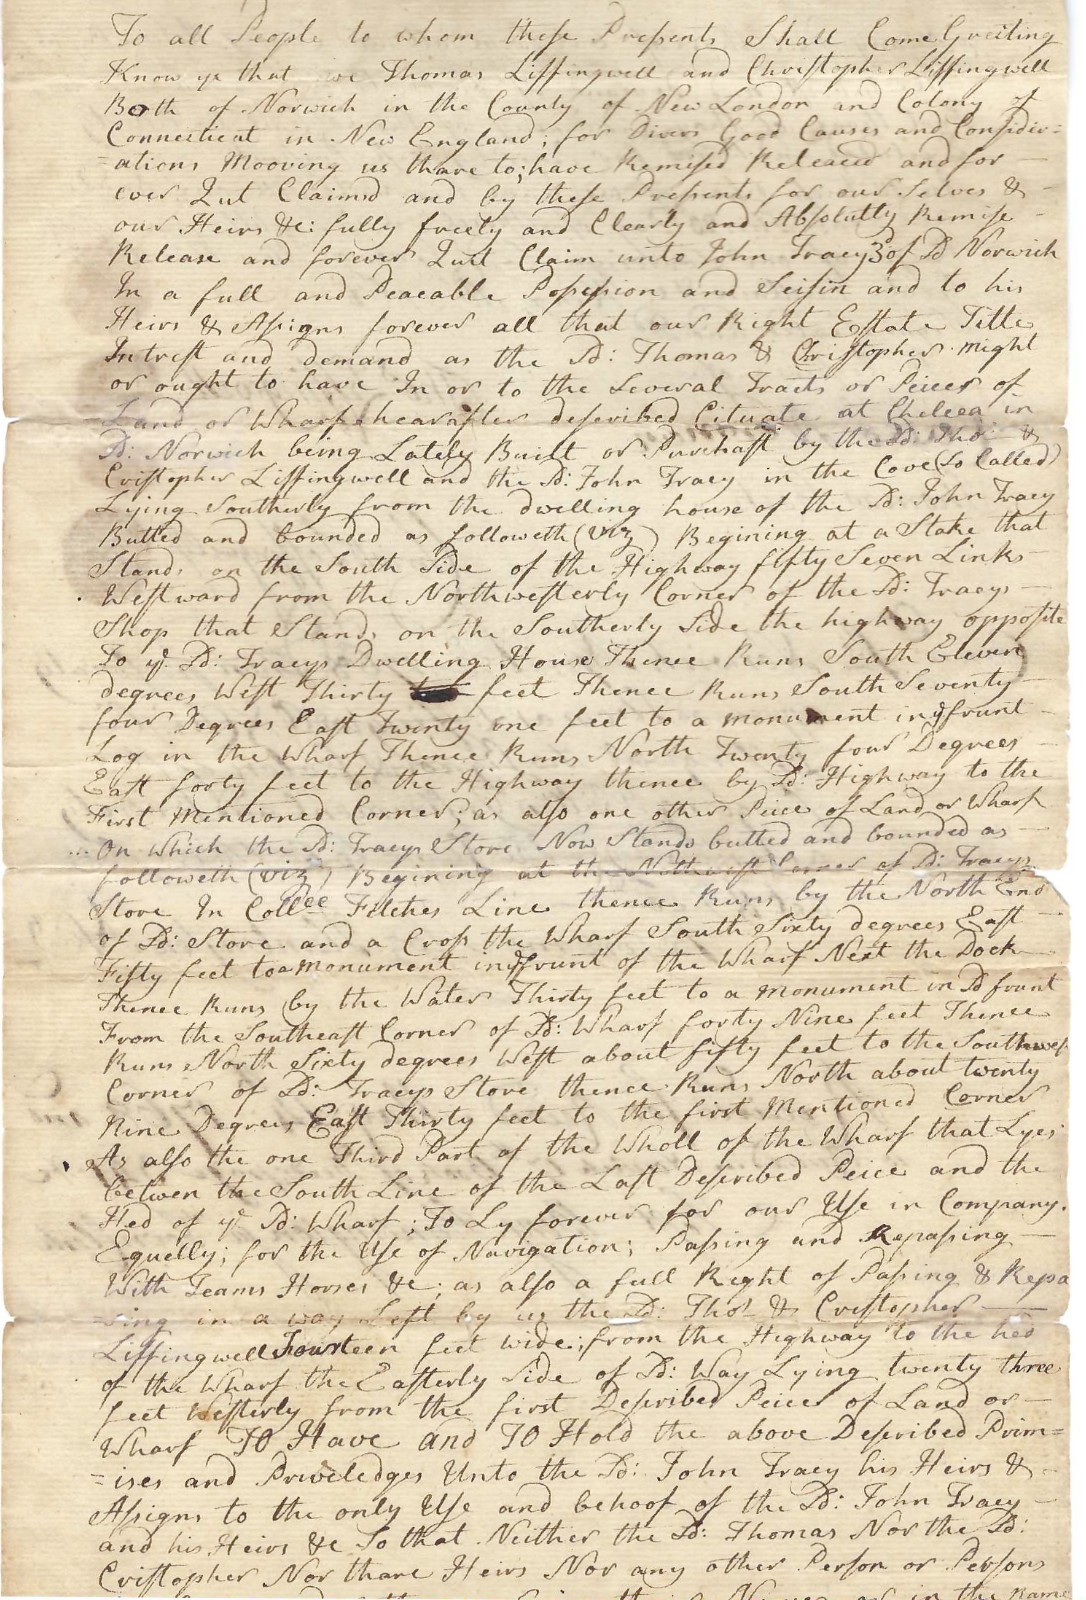 To all People to whom these Presents Shall Come Greiting
Know ye that we Thomas Liffingwell and Christopher Liffingwell
Both of Norwich in the County of New London and Colony of
Connecticut in New England; for Divers Good Causes and Considir=
=ations Mooving us thare to; have Remised Releaced and for
ever Qut Claimed and by these Presents for our Selves &
our Heirs &c: fully freely and Clearly and Absolutly Remise
Release and forever Quit Claim unto John Tracy 3d of Sd Norwich
In a full and Peacable Posession and Seisin and to his
Heirs & Assigns forever all that our Right Estate Title
Intrest and demand as the Sd: Thomas & Christopher might
or ought to have In or to the Several Tracts or Peices of
Land or Wharf hearafter described Cituate at Chelcea in
Sd: Norwich being Lately Built or Purchast by the Sd: Thos: &
Cristopher Liffingwell and the Sd: John Tracy in the Cove (So Called)
Lying Southerly from the dwelling house of the Sd: John Tracy
Butted and bounded as followeth (Viz) Begining at a Stake that
Stands on the South Side of the Highway fifty Seven Links
Westward from the Northwesterly Corner of the Sd: Tracys
Shop that Stands on the Southerly Side the highway opposite
To ye Sd: Tracys Dwelling House Thence Runs South Eleven
degrees West Thirty feet Thence Runs South Seventy
four Degrees East Twenty one feet to a monument in ye frunt
Log in the Wharf Thence Runs North Twenty four Degrees
East forty feet to the Highway thence by Sd: Highway to the
First Mentioned Corner; as also one other Peice of Land or Wharf
On which the Sd: Tracys Store Now Stands butted and bounded as
followeth (Viz) Begining at the Nothwest Corner of Sd: Tracys
Store In Collee Fitches Line thence Runs by the North End
of Sd: Store and a Cross the Wharf South Sixty degrees East
Fifty feet to a monument in ye frunt of the Wharf Next the Dock
Thence Runs by the Water Thirty feet to a monument in Sd frunt
From the Southeast Corner of Sd: Wharf forty Nine feet Thence
Runs North Sixty degrees West about fifty feet to the Southwest
Corner of Sd: Tracys Store thence Runs North about twenty
Nine Degrees East Thirty feet to the first Mentioned Corner
As also the one Third Part of the Wholl of the Wharf that Lyes
betwen the South Line of the Last Described Peice and the
Hed of ye Sd: Wharf; To Ly forever for our Use in Company
Equelly; for the Use of Navigation; Passing and Repassing
With Teams Horses &c; as also a full Right of Passing & Repa
=sing in a way Left by us the Sd: Thos & Cristopher
Liffingwell Fourteen feet wide; from the Highway to the hed
of the Wharf the Easterly Side of Sd: Way Lying twenty three
feet Westerly from the first Described Peice of Land or
Wharf TO Have and TO Hold the above Described Prim=
=ises and Priveledges Unto the Sd: John Tracy his Heirs &
Assigns to the only Use and behoof of the Sd: John Tracy
and his Heirs &c So that Neither the Sd: Thomas Nor the Sd:
Cristopher Nor thare Heirs Nor any other Person or Persons
in the Name